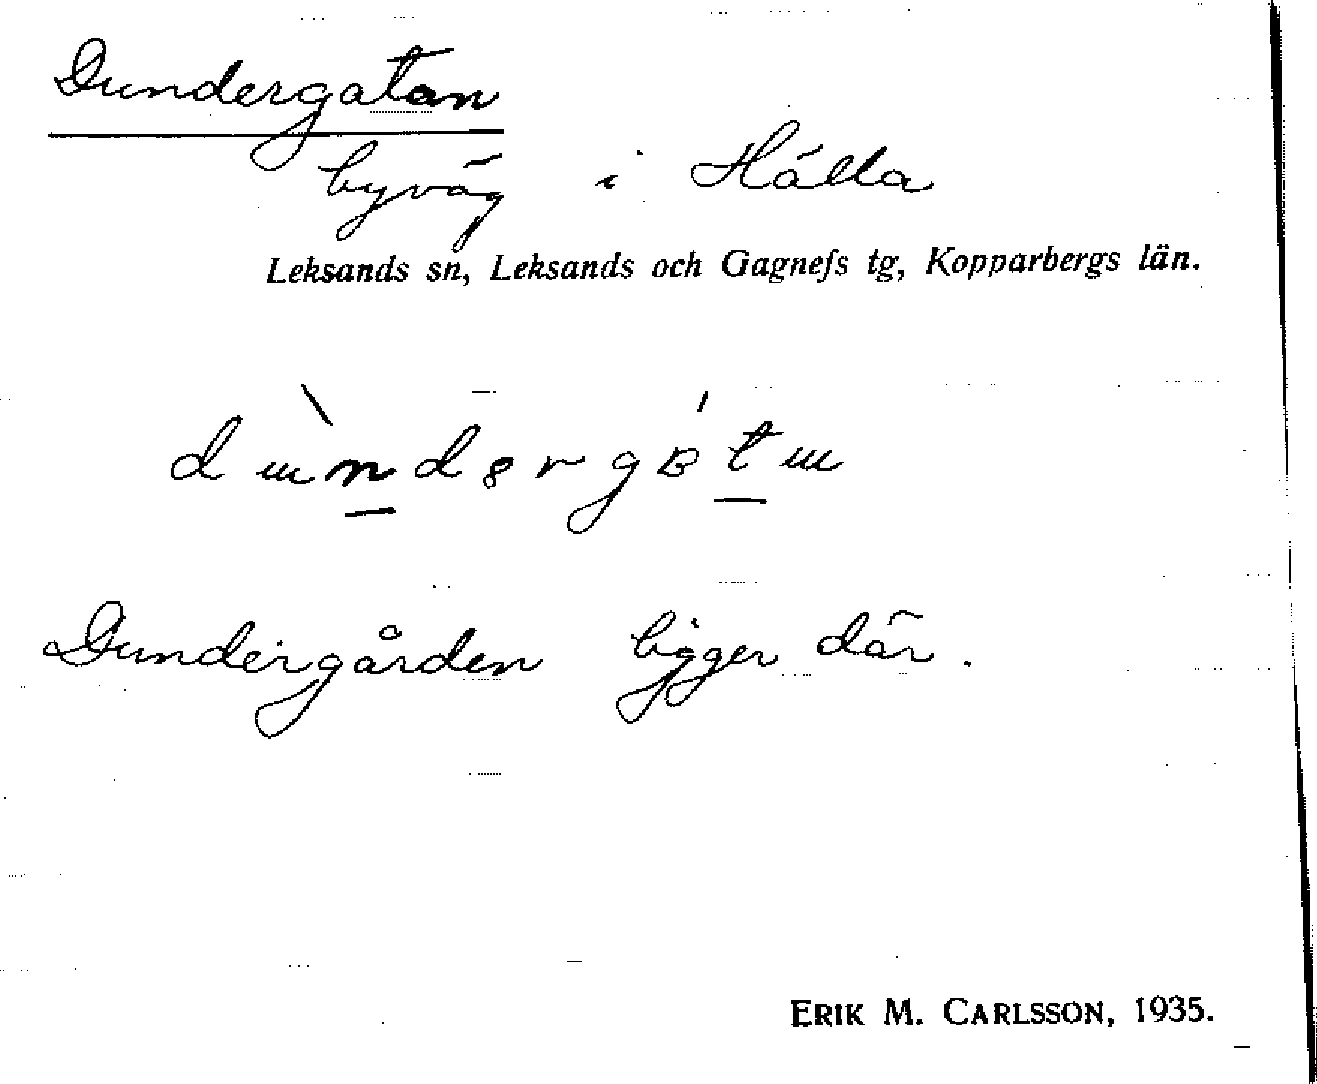 Dundergatan
byväg i Hälla
Leksands sn, Leksands och Gagnefs tg, Kopparbergs län.
Dundergården ligger där.
ERIK M. CARLSSON, 1935.